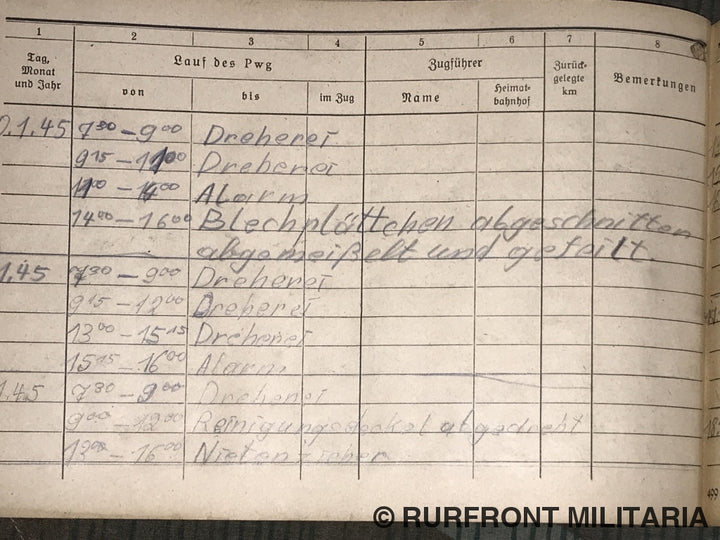 1 2 3 4 5 6 7 8
Tag, Monat und Jahr
Lauf des Pwg
Zugführer
Zurück-
gelegte
km
Bemerkungen
von bis im Zug Name Heimat-
bahnhof
0.1.45 7³⁰ – 9⁰⁰ Dreherei
9¹⁵ – 11⁰⁰ Dreherei
11⁰⁰ – 14⁰⁰ Alarm
14⁰⁰ – 16⁰⁰ Blechplättchen abgeschnitten
abgemeißelt und gefeilt.
1.45 7³⁰ – 9⁰⁰ Dreherei
9¹⁵ – 12⁰⁰ Dreherei
13⁰⁰ – 15¹⁵ Dreherei
15¹⁵ – 16⁰⁰ Alarm
1.45 7³⁰ – 9⁰⁰ Dreherei
9⁰⁰ – 12⁰⁰ Reinigungsdeckel abgedreht
13⁰⁰ – 16⁰⁰ Nietenzieher
499
© RURFRONT MILITARIA